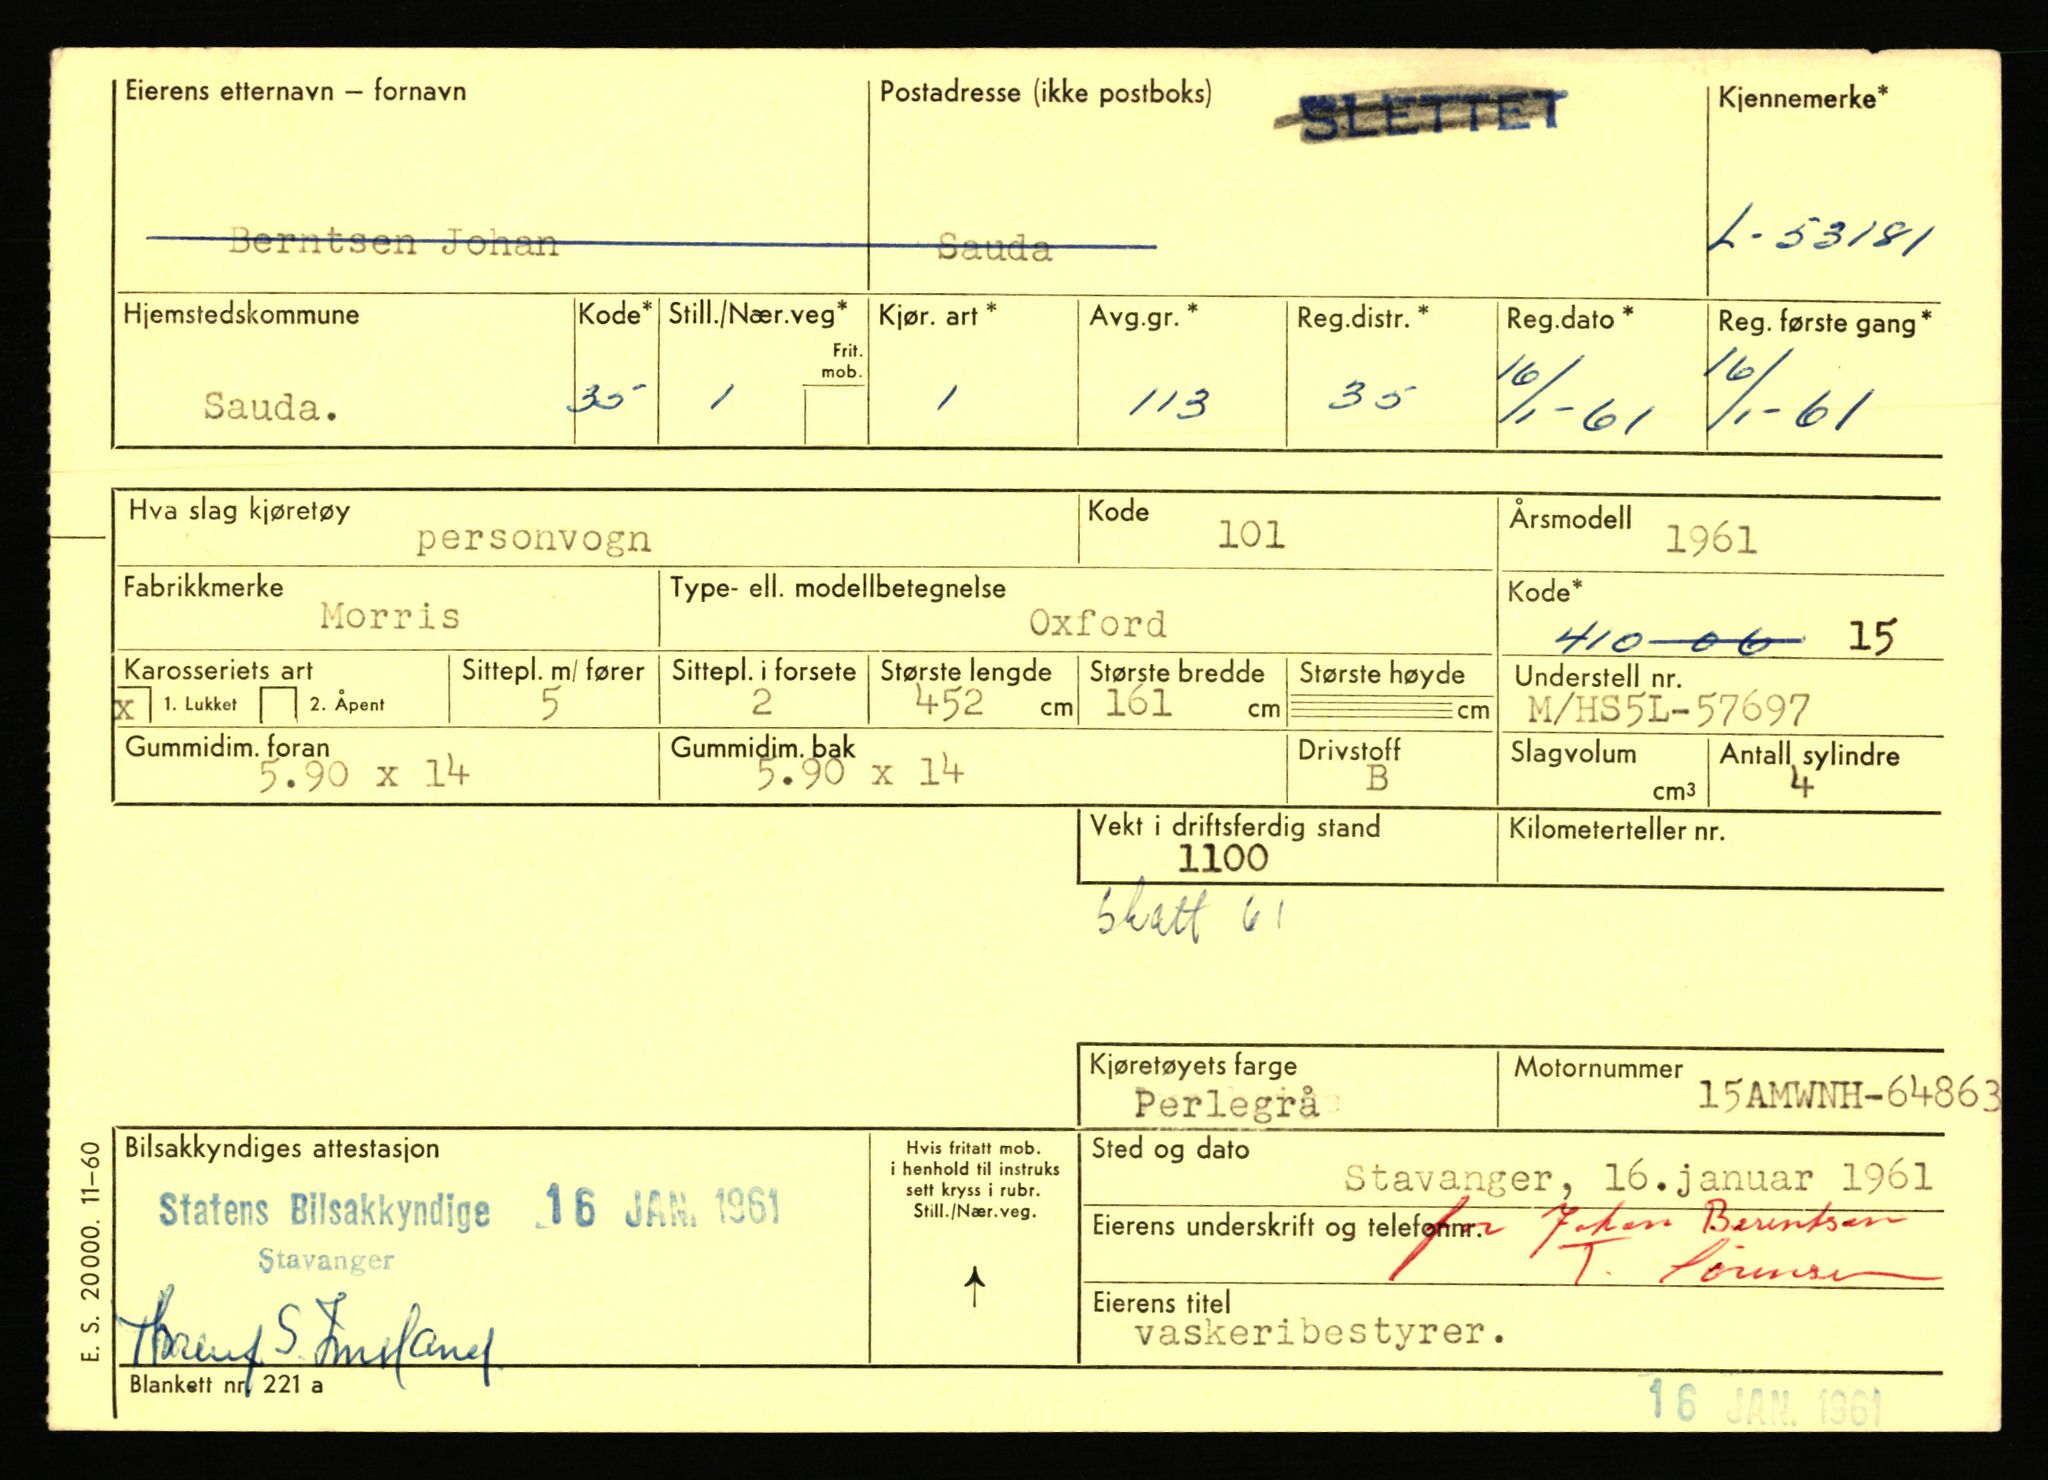 Eierens etternavn – fornavn
Postadresse (ikke postboks)
SLETTET
Kjennemerke*
Berntsen Johan
Sauda
L-53181
Hjemstedskommune
Kode*
Still./Nær.veg*
Frit.
mob.
Kjør. art *
Avg.gr. *
Reg.distr. *
Reg.dato *
Reg. første gang*
Sauda.
35
1
1
113
35
16/1-61
16/1-61
Hva slag kjøretøy
personvogn
Kode
101
Årsmodell
1961
Fabrikkmerke
Morris
Type- ell. modellbetegnelse
Oxford
Kode*
410-06 15
Karosseriets art
x 1. Lukket 2. Åpent
Sittepl. m/ fører
5
Sittepl. i forsete
2
Største lengde
452 cm
Største bredde
161 cm
Største høyde
cm
Understell nr.
M/HS5L-57697
Gummidim. foran
5.90 x 14
Gummidim. bak
5.90 x 14
Drivstoff
B
Slagvolum
cm³
Antall sylindre
4
Vekt i driftsferdig stand
1100
Kilometerteller nr.
Skatt 61
Kjøretøyets farge
Perlegrå
Motornummer
15AMWNH-64863
Bilsakkyndiges attestasjon
Statens Bilsakkyndige 16 JAN. 1961
Stavanger
Hvis fritatt mob.
i henhold til instruks
sett kryss i rubr.
Still./Nær.veg.
↑
Sted og dato
Stavanger, 16.januar 1961
Eierens underskrift og telefonnr.
for Johan Berentsen
T. Sørensen
Eierens titel
vaskeribestyrer.
E. S. 20000. 11–60
Blankett nr. 221 a
16 JAN. 1961